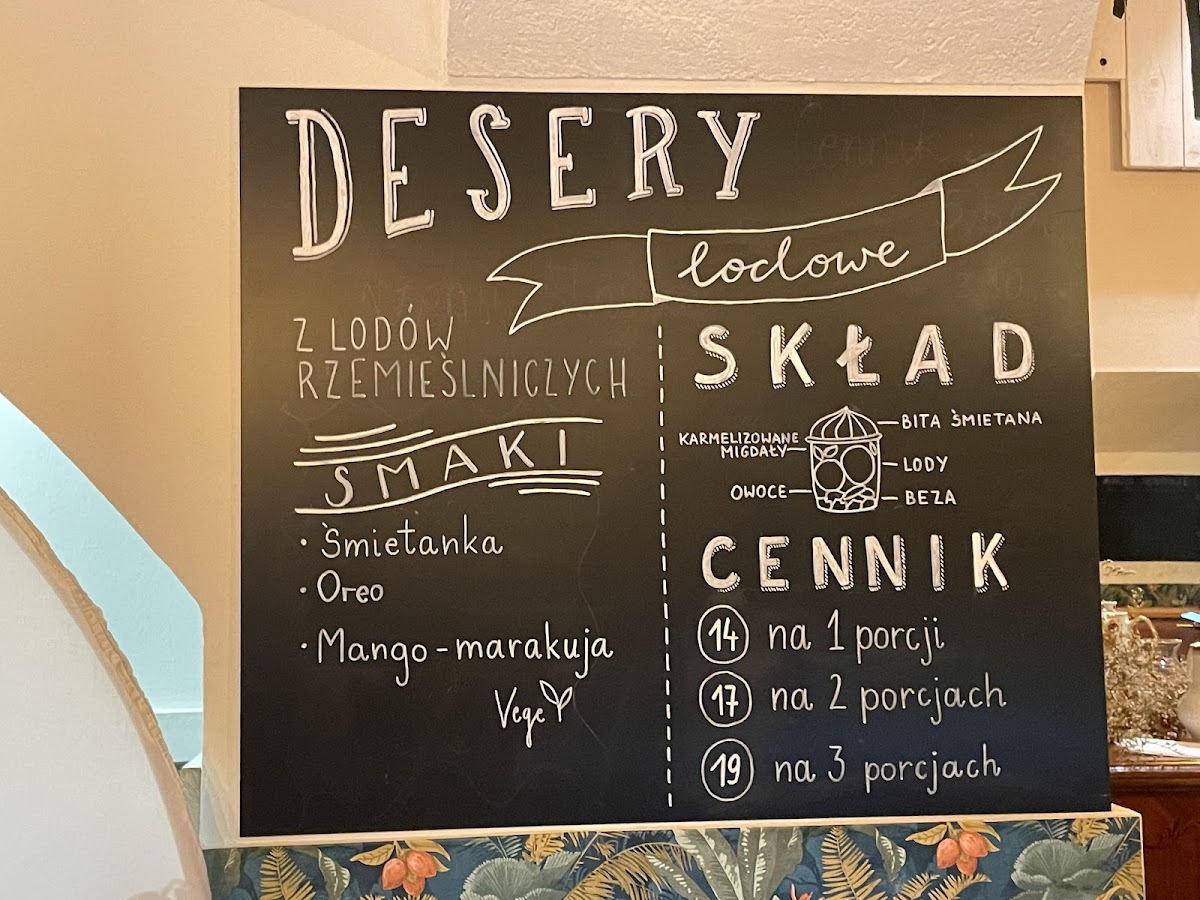 DESERY
lodowe
Z LODÓW
RZEMIEŚLNICZYCH
SMAKI
• Śmietanka
• Oreo
• Mango-marakuja
Vege
SKŁAD
KARMELIZOWANE
MIGDAŁY
OWOCE
BITA ŚMIETANA
LODY
BEZA
CENNIK
14 na 1 porcji
17 na 2 porcjach
19 na 3 porcjach